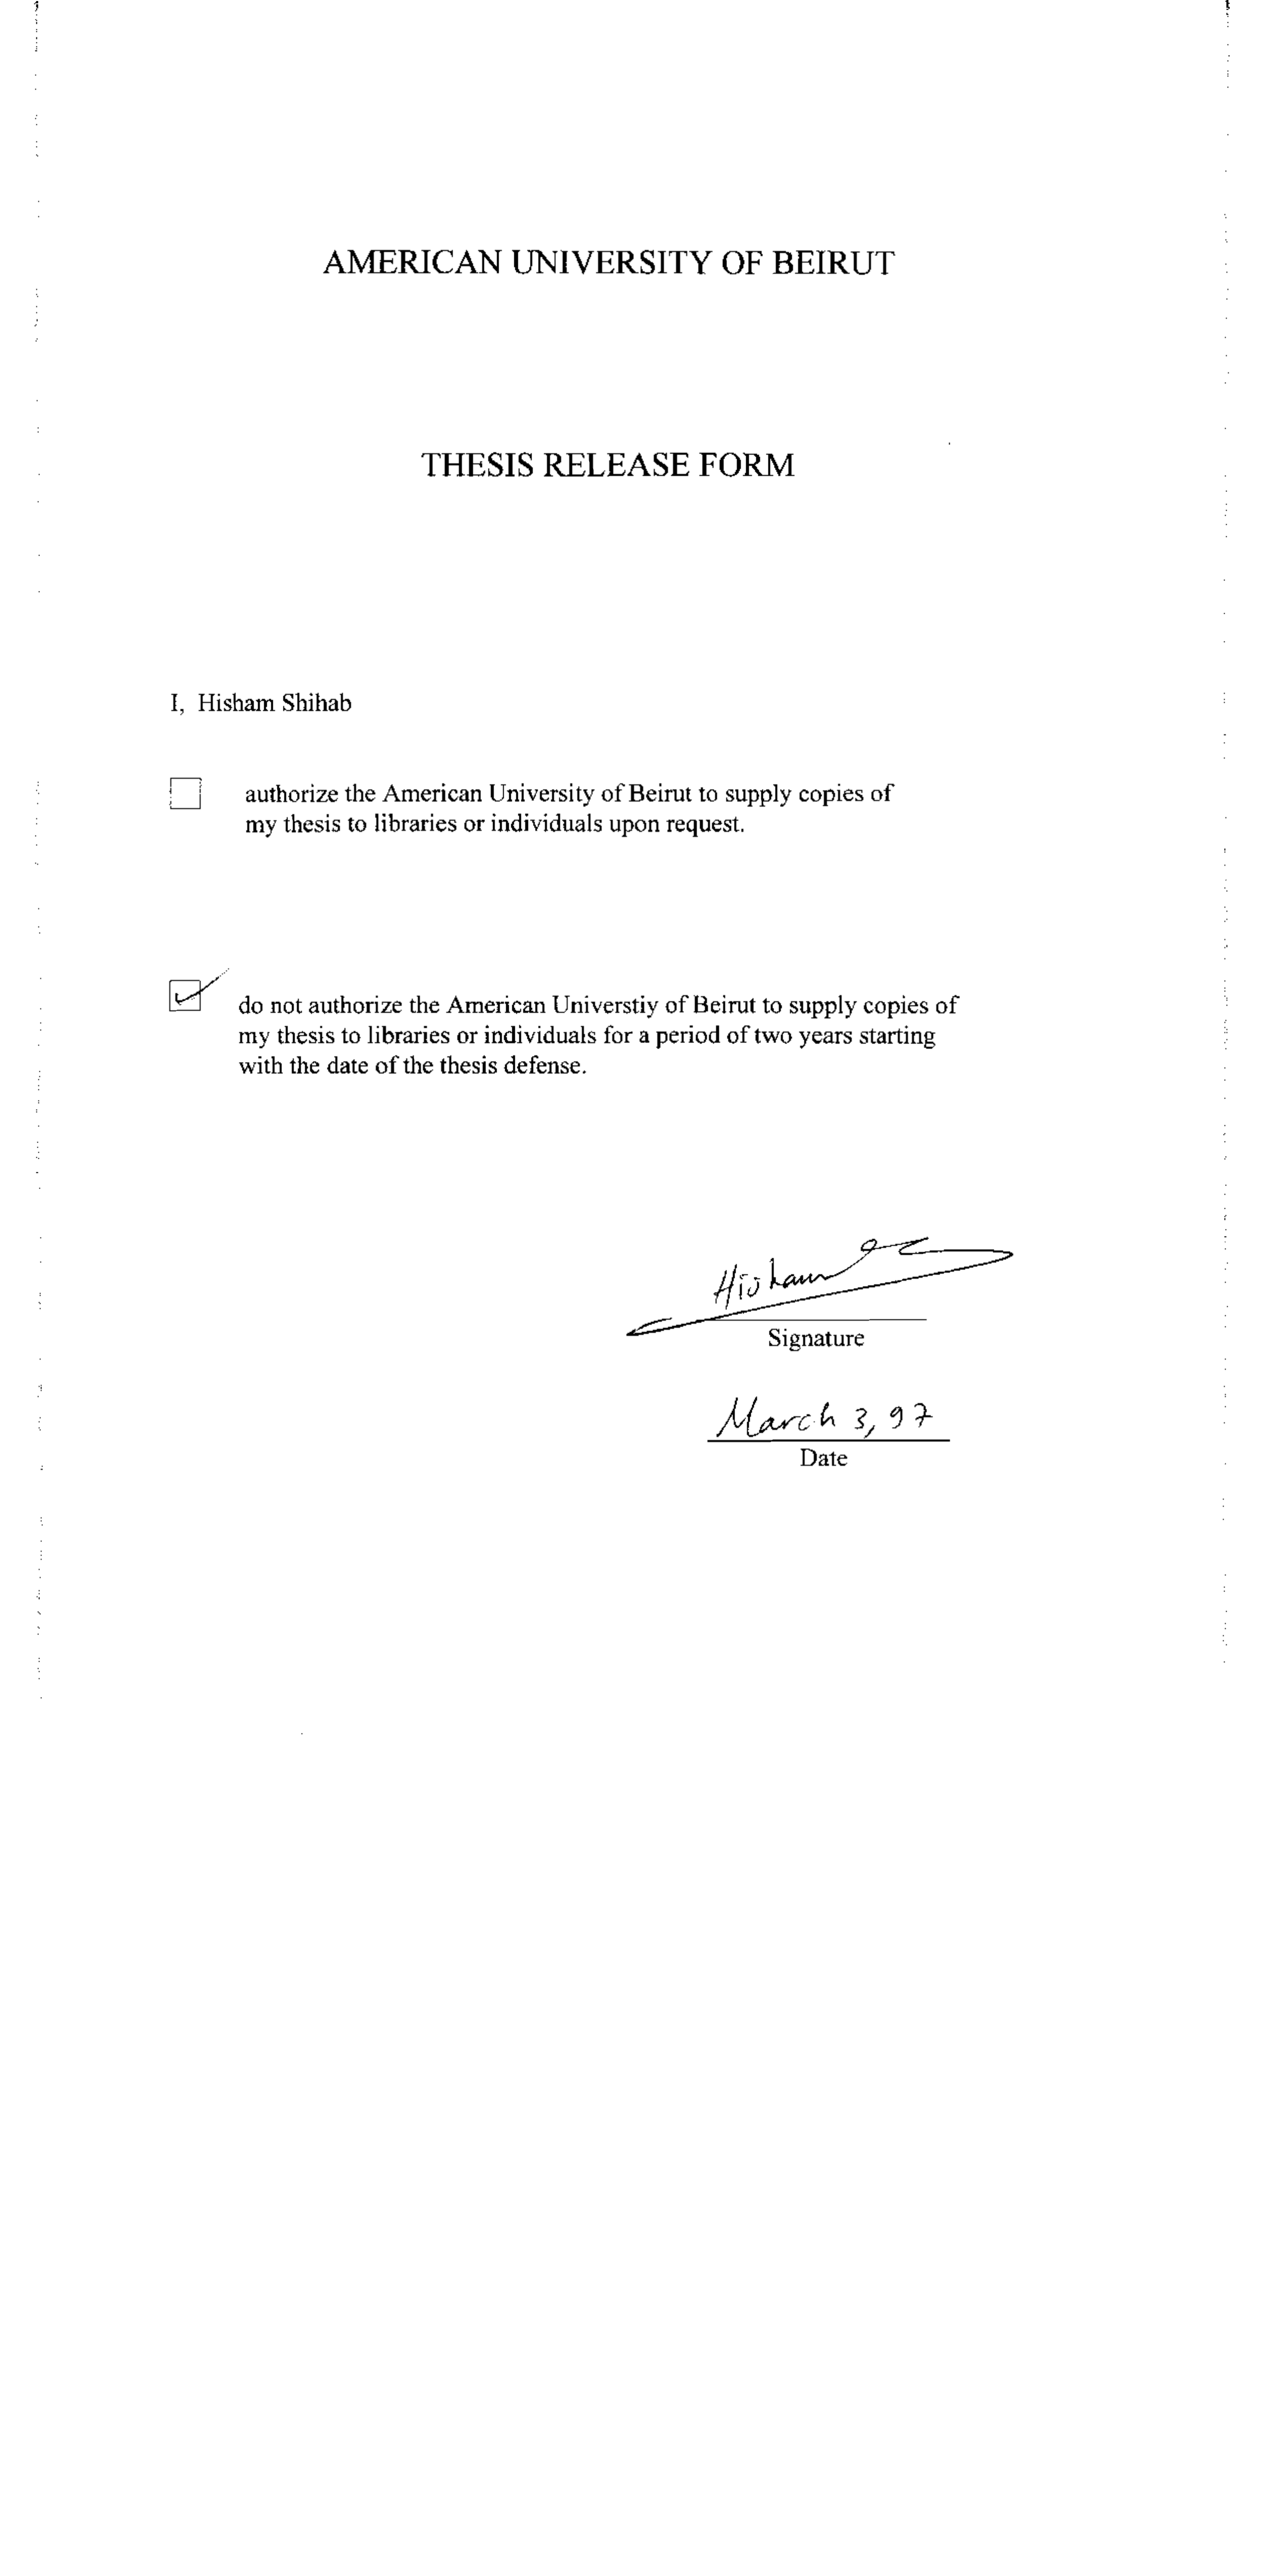 AMERICAN UNIVERSITY OF BEIRUT
THESIS RELEASE FORM
I, Hisham Shihab
authorize the American University of Beirut to supply copies of
my thesis to libraries or individuals upon request.
do not authorize the American Universtiy of Beirut to supply copies of
my thesis to libraries or individuals for a period of two years starting
with the date of the thesis defense.
Hisham
Signature
March 3, 97
Date